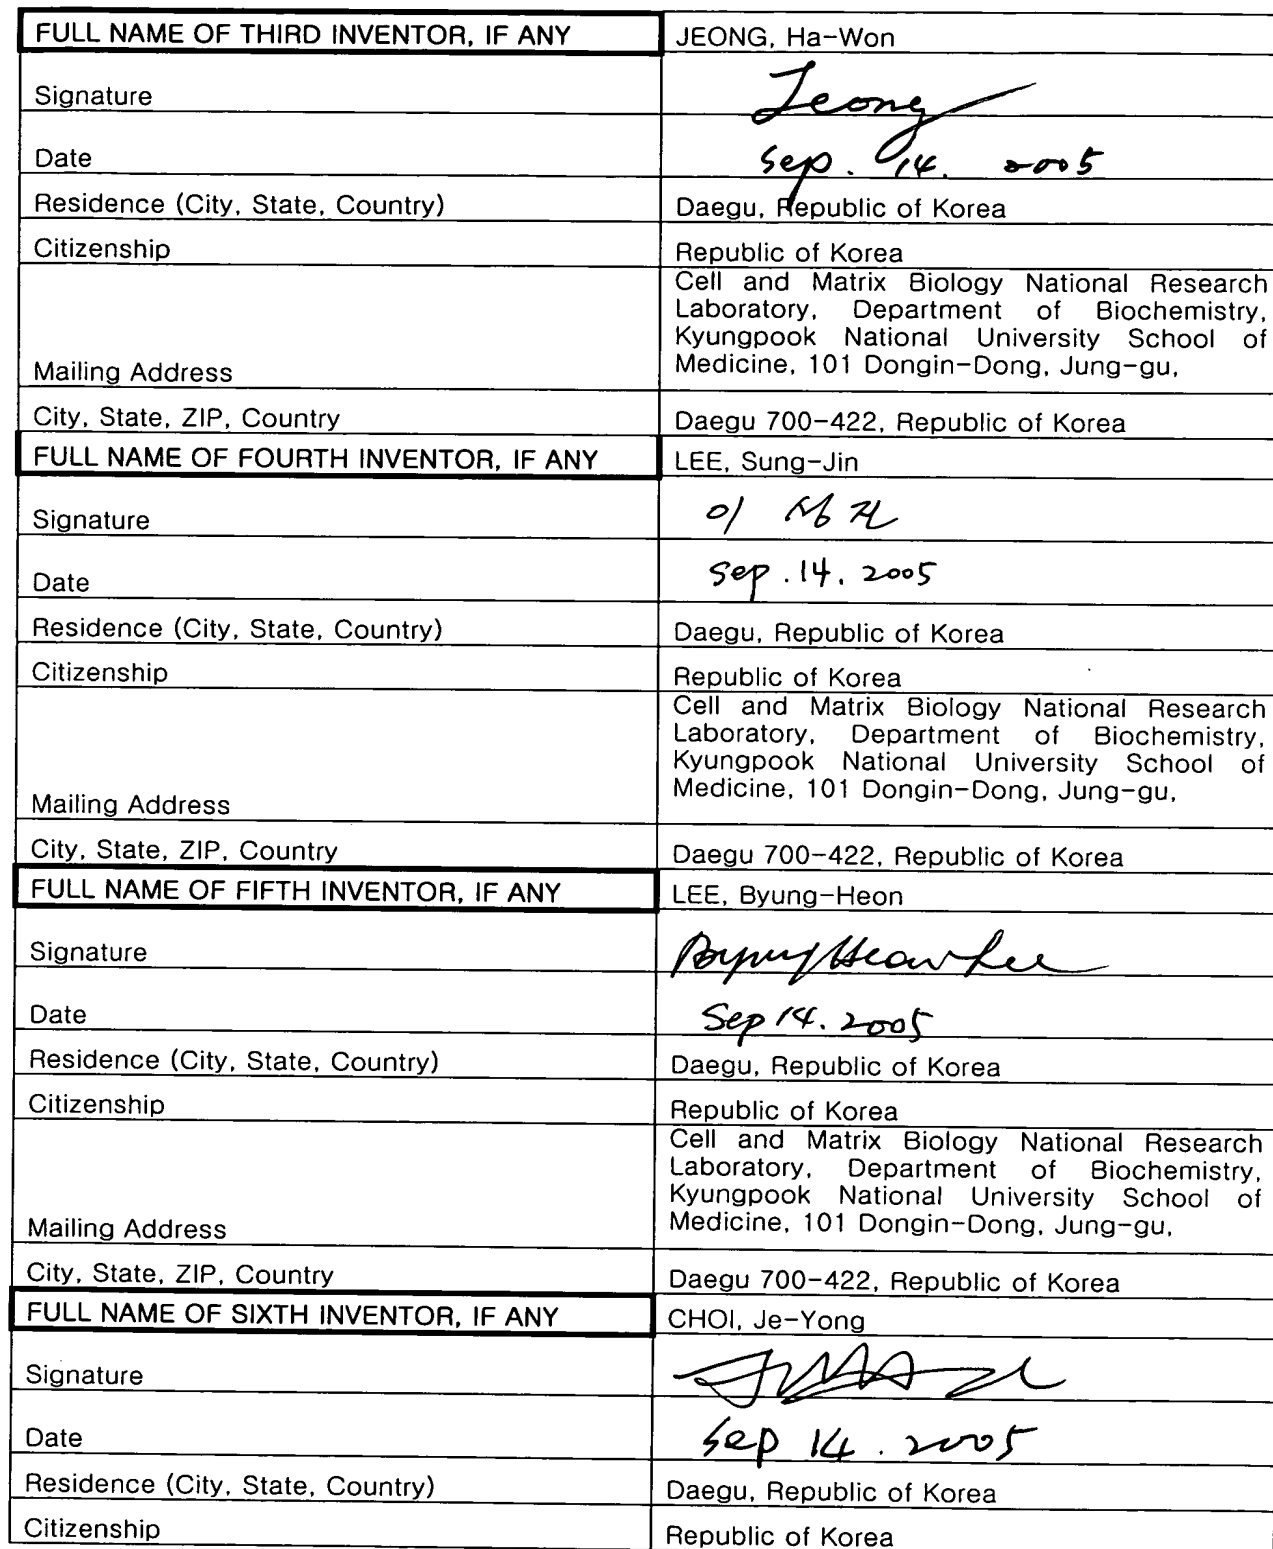 FULL NAME OF THIRD INVENTOR, IF ANY JEONG, Ha-Won
Signature Jeong
Date Sep. 14. 2005
Residence (City, State, Country) Daegu, Republic of Korea
Citizenship Republic of Korea
Cell and Matrix Biology National Research
Laboratory, Department of Biochemistry,
Kyungpook National University School of
Medicine, 101 Dongin-Dong, Jung-gu,
Mailing Address
City, State, ZIP, Country Daegu 700-422, Republic of Korea
FULL NAME OF FOURTH INVENTOR, IF ANY LEE, Sung-Jin
Signature 이 성진
Date Sep. 14. 2005
Residence (City, State, Country) Daegu, Republic of Korea
Citizenship Republic of Korea
Cell and Matrix Biology National Research
Laboratory, Department of Biochemistry,
Kyungpook National University School of
Medicine, 101 Dongin-Dong, Jung-gu,
Mailing Address
City, State, ZIP, Country Daegu 700-422, Republic of Korea
FULL NAME OF FIFTH INVENTOR, IF ANY LEE, Byung-Heon
Signature Byung Heon Lee
Date Sep 14. 2005
Residence (City, State, Country) Daegu, Republic of Korea
Citizenship Republic of Korea
Cell and Matrix Biology National Research
Laboratory, Department of Biochemistry,
Kyungpook National University School of
Medicine, 101 Dongin-Dong, Jung-gu,
Mailing Address
City, State, ZIP, Country Daegu 700-422, Republic of Korea
FULL NAME OF SIXTH INVENTOR, IF ANY CHOI, Je-Yong
Signature
Date Sep 14. 2005
Residence (City, State, Country) Daegu, Republic of Korea
Citizenship Republic of Korea